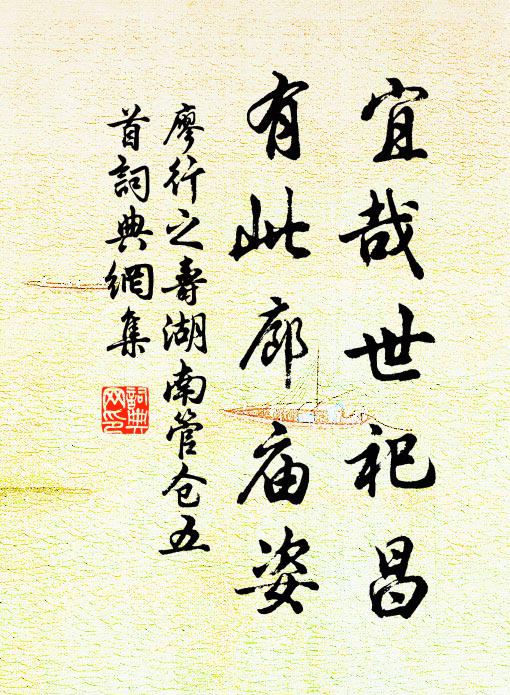 宜哉世祀昌
有此廊庙姿
廖行之寿湖南管仓五
首詞典網集
詞典
网印